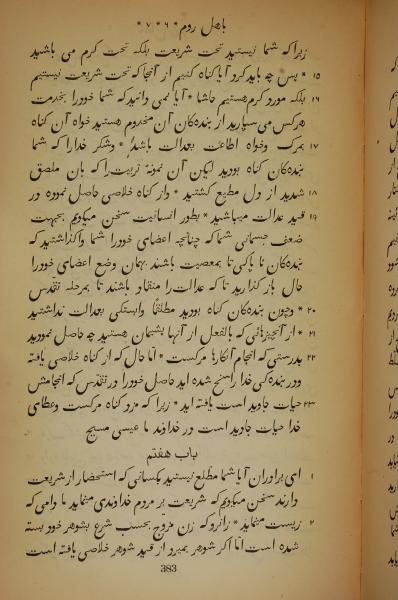 باهل روم * ۶ * ۷ *
زیرا که شما نیستید تحت شریعت بلکه تحت کرم می باشید
۱۵ * پس چه باید کرد آیا گناه کنیم از آنجا که تحت شریعت نیستیم
۱۶ بلکه مورد کرم هستیم حاشا * آیا نمی دانید که شما خود را بخدمت
هر کس می سپارید از بنده‌کان آن مخدوم هستید خواه آن گناه
۱۷ بمرک وخواه اطاعت بعدالت باشد * وشکر خدا را که شما
بنده‌کان گناه بودید لیکن آن نمونهٔ تربیت را که بان ملصق
۱۸ شدید از دل مطیع کشتید * واز گناه خلاصی حاصل نموده در
۱۹ قید عدالت میباشید * بطور انسانیت سخن میکویم بجهت
ضعف جسمانی شما که چنانچه اعضای خود را شما واکذاشتید که
بنده‌کان ناپاکی تا بمعصیت باشند بهمان وضع اعضای خود را
حال باز کذارید تا که عدالت را منقاد باشند تا بمرحلهٔ تقدس
۲۰ * وچون بنده‌کان گناه بودید مطلقًا وابستکی بعدالت نداشتید
۲۱ * از آنچیزهائی که بالفعل از آنها پشیمان هستید چه حاصل نمودید
۲۲ بدرستی که انجام آنکارها مرکست * اما حال که از گناه خلاصی یافته
ودر بنده‌کی خدا راسخ شده اید حاصل خود را در تقدس که انجامش
۲۳ حیات جاوید است یافته اید * زیرا که مزد گناه مرکست وعطای
خدا حیات جاوید است در خداوند ما عیسی مسیح
باب هفتم
۱ ای برادران آیا شما مطلع نیستید بکسانی که استحضار از شریعت
دارند سخن میکویم که شریعت بر مردم خداوندی مینماید ما دامی که
۲ زیست مینماید * زانرو که زن مزوج بحسب شرع بشوهر خود بسته
شده است اما اکر شوهر بمیرد از قید شوهر خلاصی یافته است
383